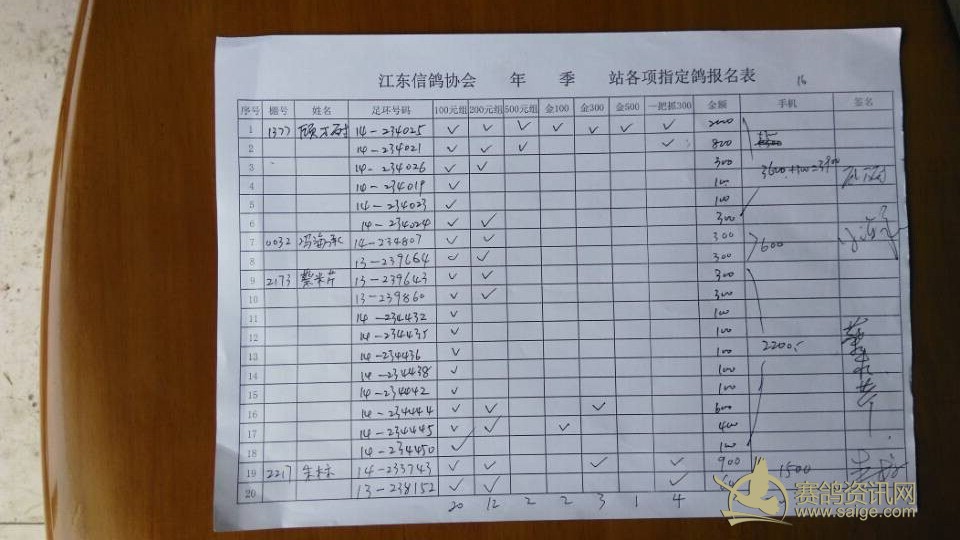 江东信鸽协会 年 季 站各项指定鸽报名表 16
序号 棚号 姓名 足环号码 100元组 200元组 500元组 金100 金300 金500 一把抓300 金额 手机 签名
1 1377 14-234025 ✓ ✓ ✓ ✓ ✓ ✓ ✓
2 14-234021 ✓ ✓ ✓ ✓ 800
3 14-234026 ✓ ✓ 300
4 14-234019 ✓ 100
5 14-234023 ✓ 100
6 14-234024 ✓ ✓ 300
7 0032 14-234807 ✓ ✓ 300 600
8 13-239664 ✓ ✓ 300
9 2173 13-239643 ✓ ✓ 300
10 13-239860 ✓ ✓ 300
11 14-234432 ✓ 100
12 14-234435 ✓ 100
13 14-234436 ✓ 100 2200.-
14 14-234438 ✓ 100
15 14-234442 ✓ 100
16 14-234444 ✓ ✓ ✓ 600
17 14-234445 ✓ ✓ ✓ 400
18 14-234450 ✓ 100
19 2217 朱林 14-233743 ✓ ✓ ✓ ✓ 900 1500
20 13-238152 ✓ ✓ ✓
20 12 2 2 3 1 4
赛鸽资讯网
www.saige.com